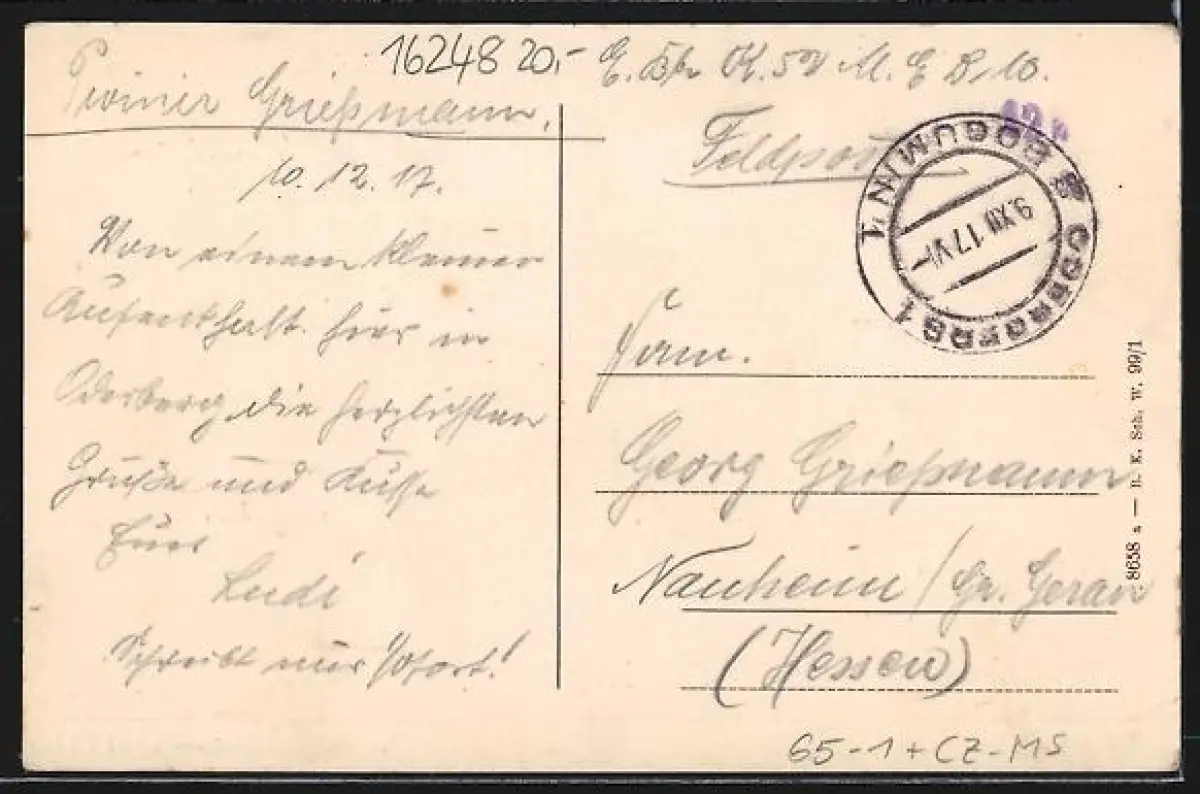 16248 20,-
Pionier Grießmann.
10.12.17.
Von einem kleinen
Aufenthalt hier in
Oderberg die herzlichsten
Grüße und Küsse
Euer
Ludi
Schreibt mir sofort!
E. K. M. G
Feldpost
ODERBERG 1
BOGUMIN 1
9.XII.17.VI
Fam.
Georg Grießmann
Nauheim / Gr. Gerau
(Hessen)
8658 a — B. K. Sch. W. 99/1
65-1+CZ-MS